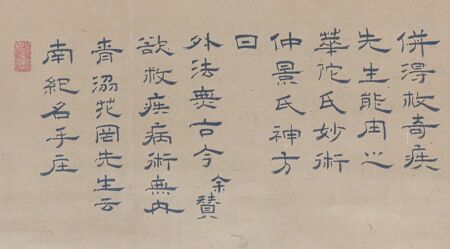 南紀名手庄
青洲花岡先生云
欲救疾病術無内
外法無古今余賛
曰
仲景氏神方
華佗氏妙術
先生能由之
併得救奇疾